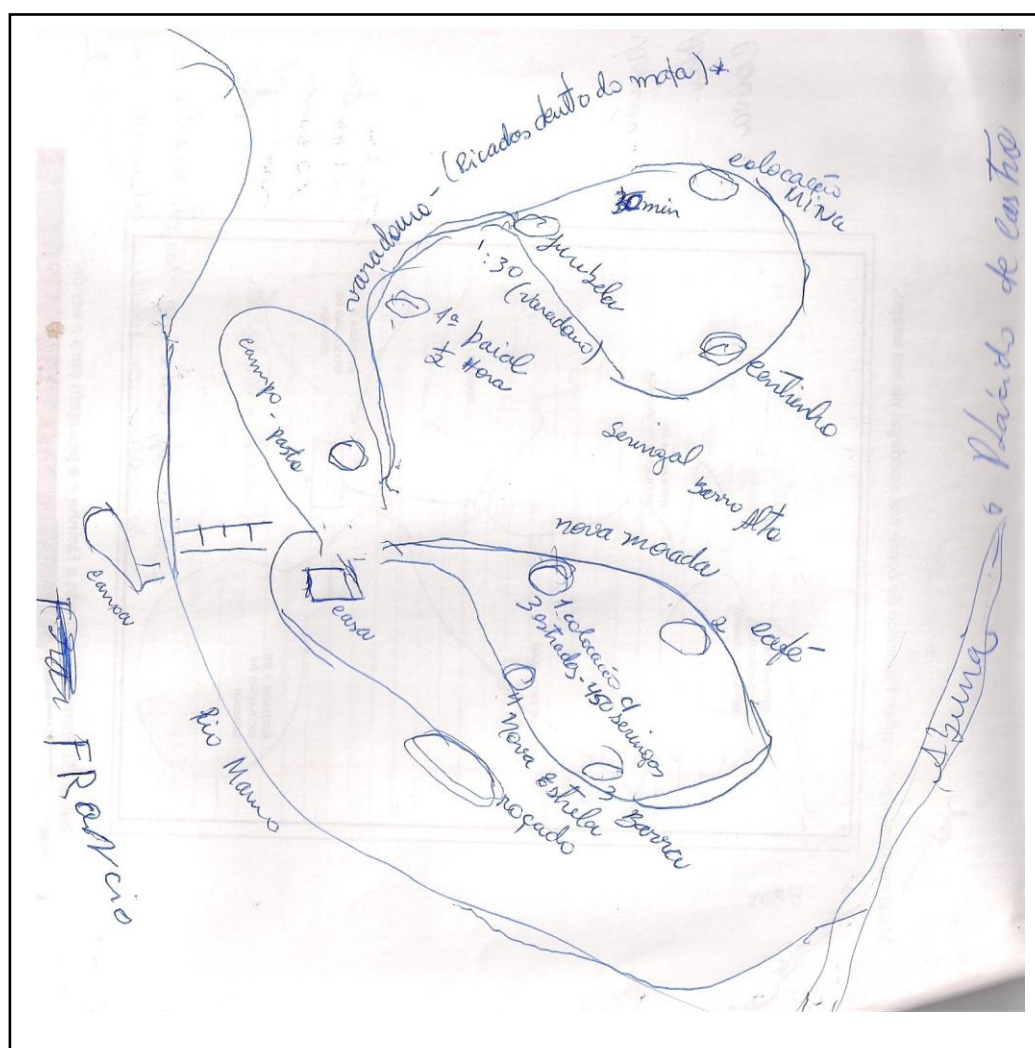 varadouro - (Picados dentro do mata) *
colocação
MiNA
30 min
Jurubeba
1:30 (varadouro)
1ª Paiol
½ Hora
centrinho
campo-pasto
seringal
Barro
Alto
nova morada
casa
canoa
1 colocação c/
3 estradas - 450 seringas
2 café
3 Barra
4 Nova Estrela
roçado
Rio Mamo
FRANCIO
Abunã
Plácido de castro